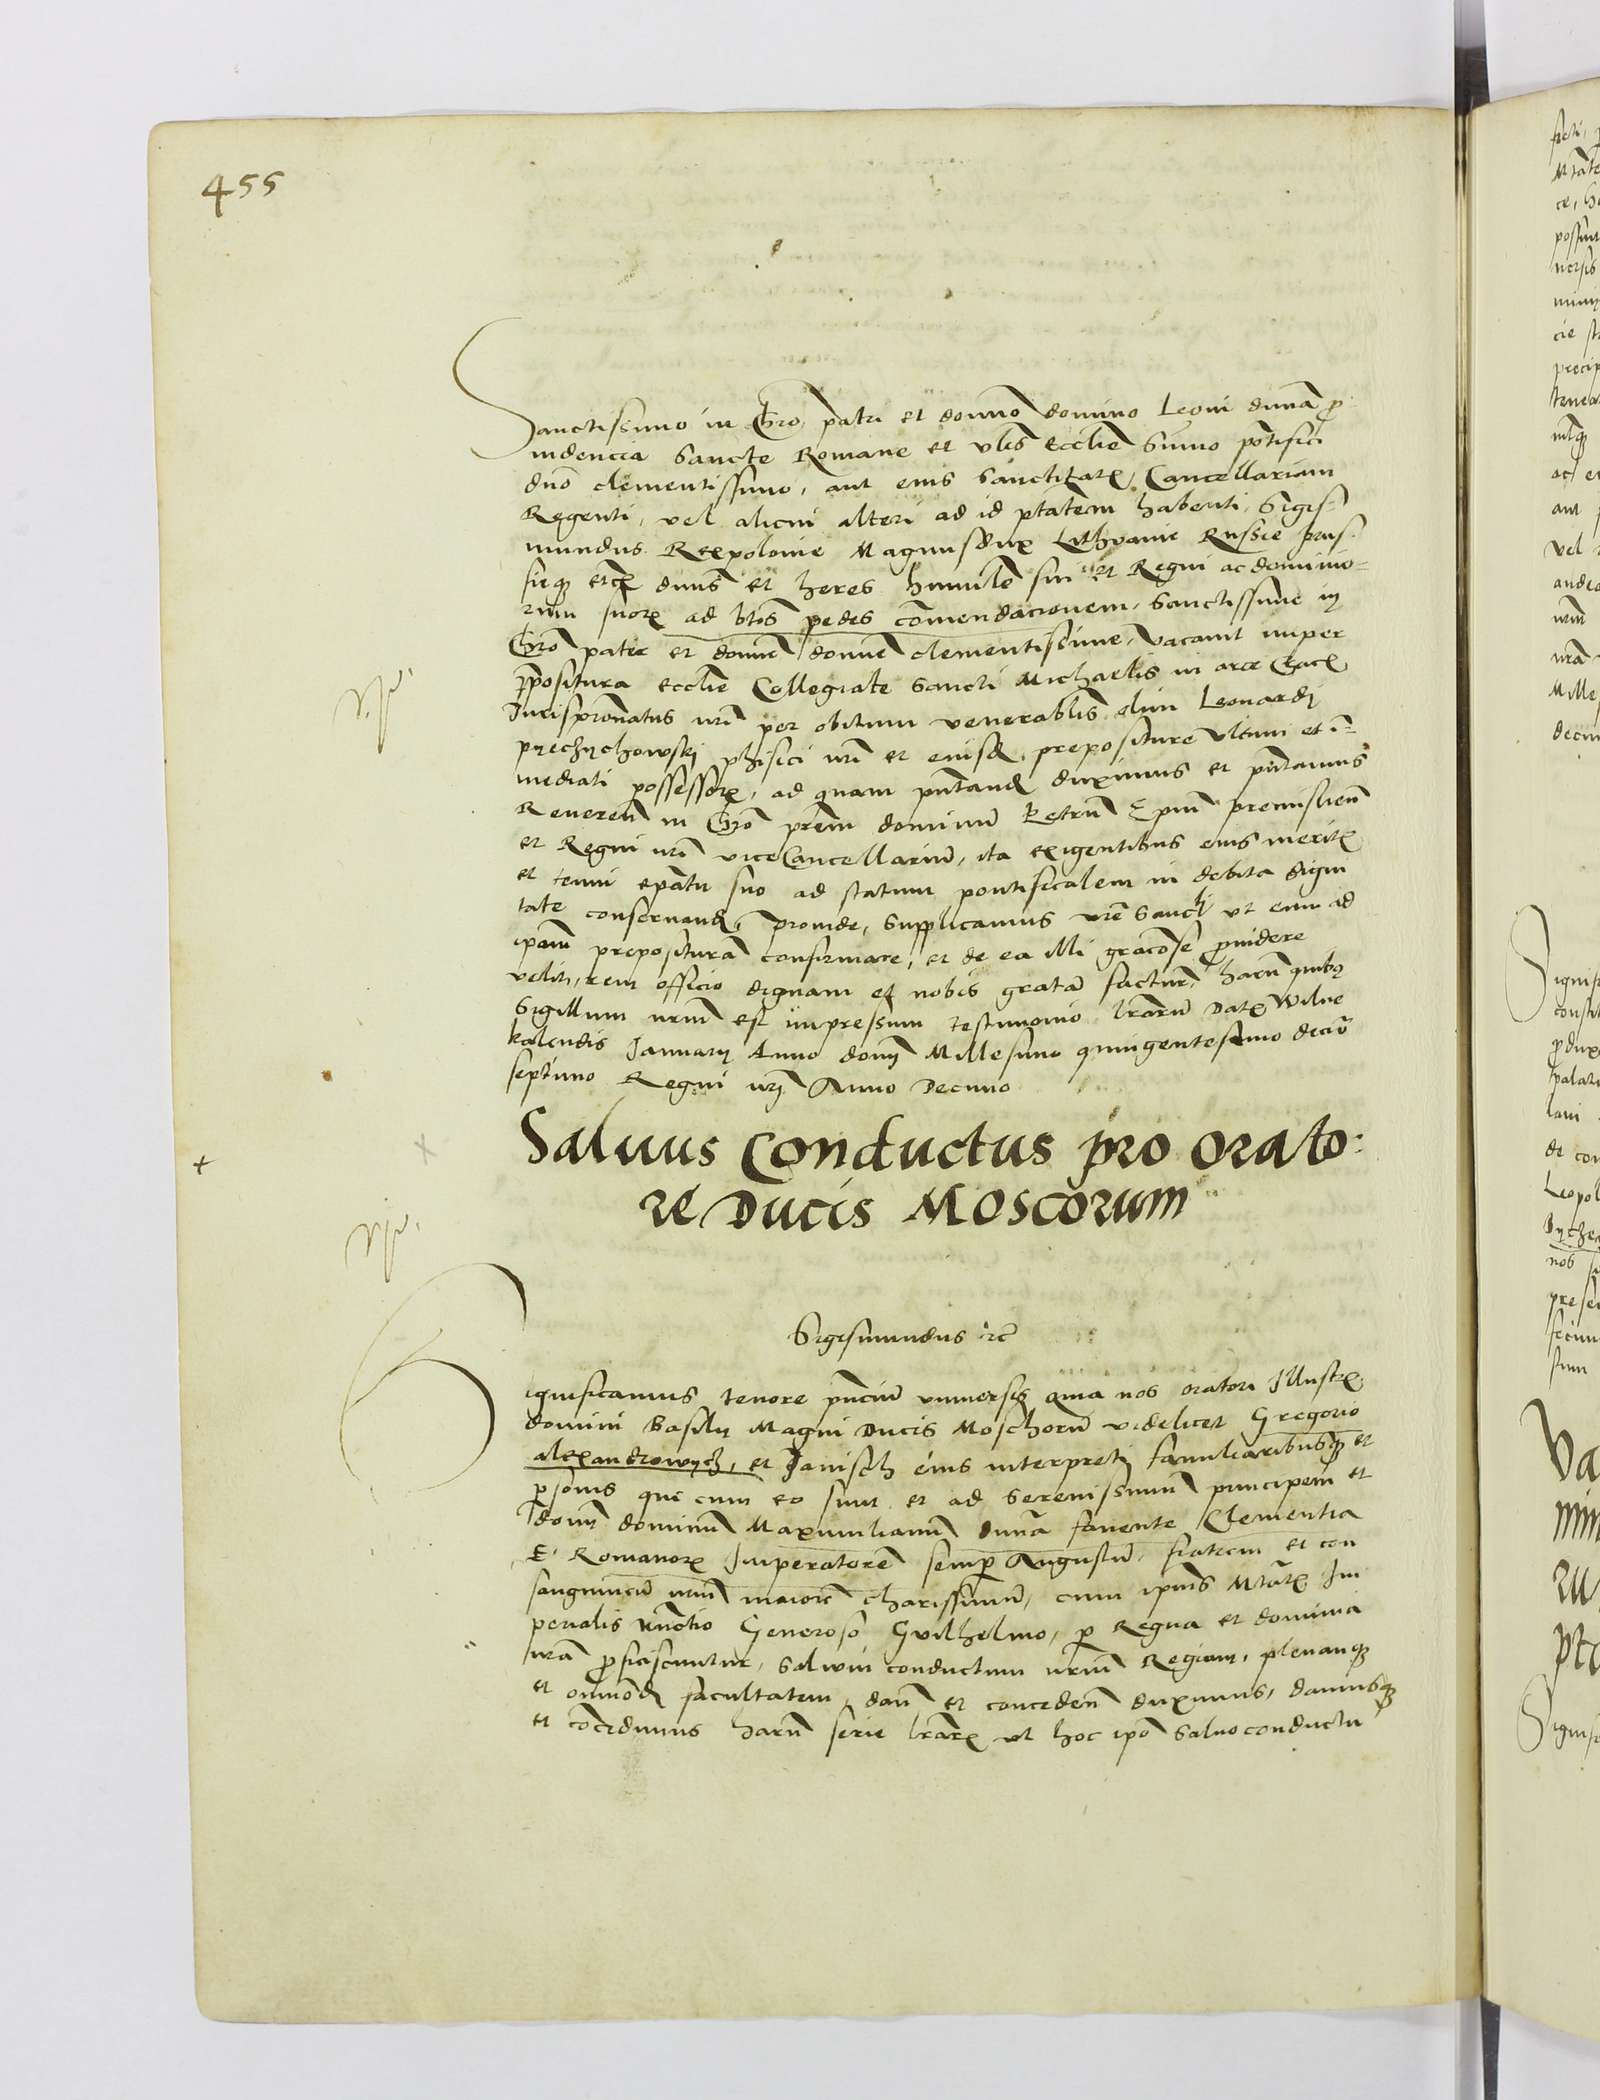 455
Sanctissimo in Chro patri et domno domino Leoni diuina pro
uidencia Sancte Romane et vlis Ecclie Sumo potifici
dno clementissimo, aut eius Sanctitatis Cancellariam
Regenti, vel alicui alteri ad id ptatem habenti, Sigis-
mundus Rex polonie Magnus dux Lithvanie Russie prus-
sieq etc dnus et heres humile sui et Regni ac dominio-
rum suor ad btos pedes comendacionem, Sanctissime in
Chro pater et domne domne clementissime, vacauit nuper
prepositura ecclie Collegiate Sancti Michaelis in arce Crac
Jurispronatus nri per obitum venerablis olim Leonardi
pyechychowskj phisici nri et eiusd prepositure vltimi et i-
mediati possessor, ad quam pntand duximus et pntamus
Reueren in Chro prem dominu Petru Epm premislien
et Regni nri viceCancellariu, ita exigentibus eius meritis
et tenui epatu suo ad statum pontificalem in debita digni
tate conseruand, proinde, supplicamus vre Sancti vt eum ad
ipam prepositura confirmare, et de ea illi graciose prouidere
velit, rem officio dignam et nobis grata factur, haru quibus
Sigillum nrm est impressum testimonio lrarum Dat Wilne
kalendis Januarij Anno domj Millesimo quingentesimo decio
septimo Regni nrj Anno Decimo
Saluus Conductus pro orato:
re Ducis Moscorum
Sigismundus etc
Significamus tenore pncium vniuersis quia nos oratori Illustris
domini Basilij Magni Ducis Moschoru videlicet Gregorio
alexandrowycz, et Janisch eius interpreti familiaribusq et
psonis que cum eo sunt et ad Serenissimum principem et
domj dominu Maximilianu diuina fauente Clementia
E. Romanor Imperatore semp Augustu, fratrem et con
sanguineu nrm maiore charissimu, cum ipius Mtatis Im
perialis Nunctio Generoso Guilhelmo, per Regna et dominia
nra proficiscuntur, Saluum conductum nrum Regium, plenamq
et omnimod facultatem, dan et conceden duximus, damusq
et concedimus haru serie lrar vt hoc ipo saluoconductu